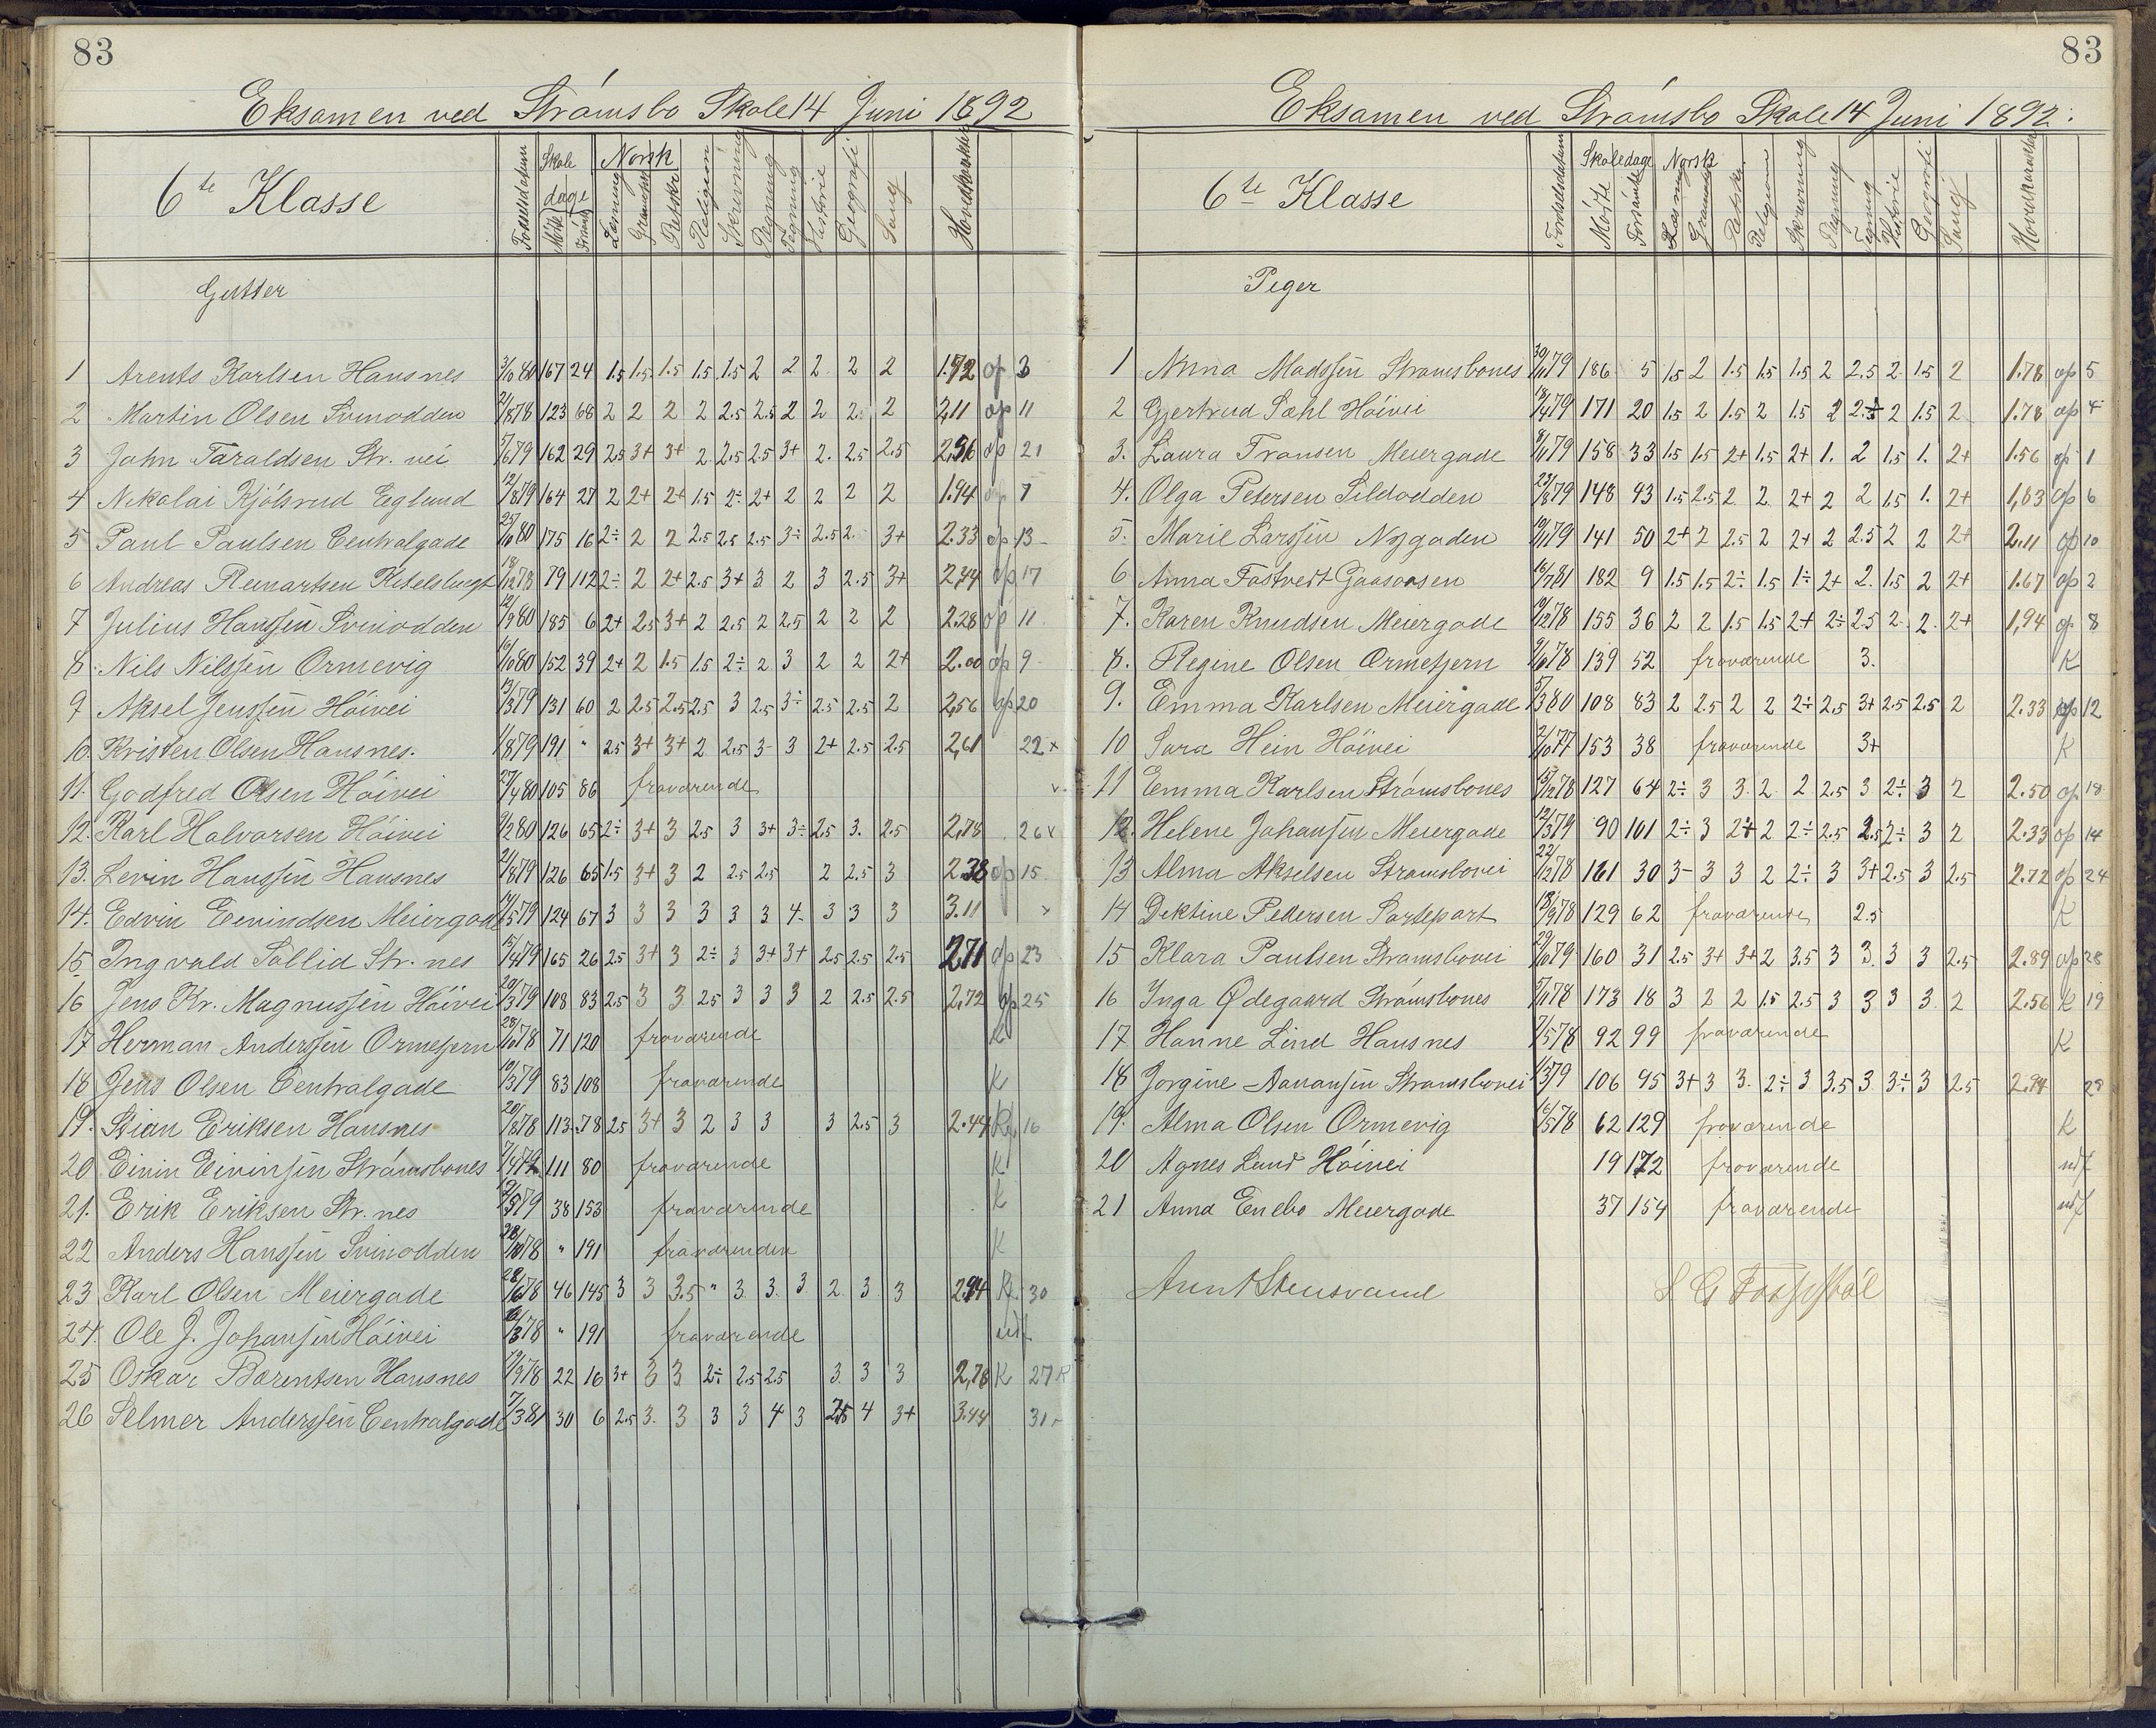 83
Eksamen ved Strømsbo Skole 14 Juni 1892
6te Klasse Fødselsdatum Skoledage Mødte Forsømte Norsk Læsning Gramatik Retskr. Religion Skrivning Regning Tegning Historie Geografi Sang Hovedkarakter
Gutter
1 Arents Karlsen Hausnes 3/10 80 167 24 1.5 1.5 1.5 1.5 1.5 2 2 2 2 2 1.72 op 3
2 Martin Olsen Svinodden 21/8 78 123 68 2 2 2 2 2.5 2.5 2 2 2 2 2,11 op 11
3 John Taraldsen Str. vei 5/6 79 162 29 2.5 3+ 3+ 2 2.5 2.5 3+ 2. 2.5 2.5 2,56 op 21
4 Nikolai Kjölsrud Eglund 12/8 79 164 27 2 2+ 2+ 1.5 2÷ 2+ 2 2 2 2 1.94 op 7
5 Paul Paulsen Centralgade 25/10 80 175 16 2÷ 2 2 2.5 2.5 2.5 3÷ 2.5 2. 3+ 2.33 op 13
6 Andreas Reinartsen 18/12 78 79 112 2÷ 2 2+ 2.5 3+ 3 2 3 2.5 3+ 2,44 op 17
7 Julius Hanssen Svinodden 12/9 80 185 6 2+ 2.5 3+ 2 2.5 2 2.5 2 2 2 2.28 op 11
8. Nils Nilssen Ormevig 16/10 80 152 39 2+ 2 1.5 1.5 2÷ 2 3 2 2 2+ 2.00 op 9
9 Aksel Jenssen Höivei 13/3 79 131 60 2 2.5 2.5 2.5 3 2.5 3÷ 2.5 2.5 2 2,56 op 20
10. Kristen Olsen Hausnes. 1/8 79 191 " 2.5 3+ 3+ 2 2.5 3- 3 2+ 2.5 2.5 2,61 22 x
11. Godfred Olsen Höivei 27/4 80 105 86 fraværende
12. Karl Halvorsen Höivei 9/2 80 126 65 2÷ 3+ 3 2.5 3 3+ 3÷ 2.5 3. 2.5 2,78 26 x
13. Levin Hanssen Hausnes 21/8 79 126 65 1.5 3+ 3 2 2.5 2.5 2 2.5 3 2.38 op 15
14. Edvin Eevindsen Meiergade 14/5 79 124 67 3 3 3 3 3 3 4- 3 3 3 3.11 x
15 Ingvald Sollid Str. nes 15/4 79 165 26 2.5 3+ 3 2÷ 3 3+ 3+ 2.5 2.5 2.5 2.71 op 23
16 Jens Kr. Magnussen Höivei 20/3 79 108 83 2.5 3 3 2.5 3 3 3 2 2.5 2.5 2,72 op 25
17 Herman Anderssen Ormefjern 28/10 78 71 120 fraværende K
18 Jens Olsen Centralgade 19/3 79 83 108 fraværende K
19. Stian Eriksen Hausnes 20/3 78 113 78 2.5 3+ 3 2 3 3 3 2.5 3 2.44 16
20 Eivin Eivinsen Strømsbones 111 80 fraværende K
21. Erik Eriksen Str. nes 12/5 79 38 153 fraværende K
22 Anders Hanssen Svinodden 28/10 78 " 191 fraværenden K
23 Karl Olsen Meiergade 28/6 78 46 145 3 3 3.5 " 3 3. 3 2 3 3 2.94 K 30
24. Ole J. Johansen Höivei 16/3 78 " 191 fraværende udf
25 Oskar Børentsen Hausnes 19/9 78 22 16 3+ 3 3 2÷ 2.5 2.5 3 3 3 2,78 K 27
26 Selmer Anderssen Centralgade 7/3 81 30 6 2.5 3. 3 3 3 4 3 2.5 4 3+ 3.44 31
83
Eksamen ved Strømsbo Skole 14 Juni 1892.
6te Klasse Fødselsdatum Skoledage Mødte Forsømte Norsk Læsning Gramatik Retskr. Religion Skrivning Regning Tegning Historie Geografi Sang Hovedkarakter
Piger
1 Anna Madssen Strømsbones 30/11 79 186 5 1.5 2 1.5 1.5 1.5 2 2.5 2 1.5 2 1.78 op 5
2 Gjertrud Dæhl Höivei 18/4 79 171 20 1.5 2 1.5 2 1.5 2 2.5 2 1.5 2 1.78 op 4
3. Laura Fransen Meiergade 8/11 79 158 33 1.5 1.5 2+ 1.5 2+ 1. 2 1.5 1. 2+ 1.56 op 1
4. Olga Petersen Sildodden 23/8 79 148 43 1.5 2.5 2 2 2+ 2 2 1.5 1. 2+ 1,83 op 6
5. Marie Larssen Nygaden 19/11 79 141 50 2+ 2 2.5 2 2+ 2 2.5 2 2 2+ 2.11 op 10
6 Anna Fostvert Gaasaasen 16/7 81 182 9 1.5 1.5 2÷ 1.5 1÷ 2+ 2. 1.5 2 2+ 1.67 op 2
7. Karen Knudsen Meiergade 19/12 78 155 36 2 2 1.5 1.5 2+ 2÷ 2.5 2 2. 2+ 1,94 op 8
8. Regine Olsen Ormefjern 9/6 78 139 52 fraværende 3. K
9. Emma Karlsen Meiergade 5/3 80 108 83 2 2.5 2 2 2÷ 2.5 3+ 2.5 2.5 2 2.33 op 12
10 Sara Hein Höivei 2/10 77 153 38 fraværende 3+ K
11 Emma Karlsen Strømsbones 15/12 78 127 64 2÷ 3 3. 2 2 2.5 3 2÷ 3 2 2.50 op 18
12. Helene Johansen Meiergade 12/3 79 90 101 2÷ 3 2+ 2 2÷ 2.5 2.5 2÷ 3 2 2.33 op 14
13 Alma Akselsen Strømsbovei 22/12 78 161 30 3- 3 3 2 2÷ 3 3+ 2.5 3 2.5 2.72 op 24
14 Dektine Pedersen 18/9 78 129 62 fraværende 2.5 K
15 Klara Paulsen Strømsbovei 29/10 79 160 31 2.5 3+ 3+ 2 3.5 3 3 3 3 2.5 2.89 op 28
16 Inga Ødegaard Strømsbones 9/11 78 173 18 3 2 2 1.5 2.5 3 3 3 3. 2 2.56 K 19
17 Hanne Lind Hausnes 7/5 78 92 99 fraværende K
18 Jorgine Aanansen Strømsbovei 106 95 3+ 3 3. 2÷ 3 3.5 3 3÷ 3 2.5 2.94 29
19. Alma Olsen Ormevig 16/5 78 62 129 fraværende K
20 Agnes Lund Höivei 19 172 fraværende udf
21 Anna Enebo Meiergade 37 154 fraværende udf
Stensvand